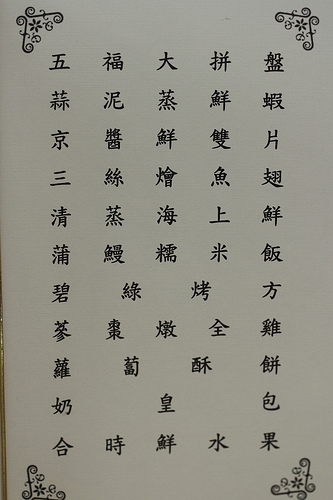 五福大拼盤
蒜泥蒸鮮蝦
京醬鮮雙片
三絲燴魚翅
清蒸海上鮮
蒲鰻糯米飯
碧綠烤方
蔘棗燉全雞
蘿蔔酥餅
奶皇包
合時鮮水果